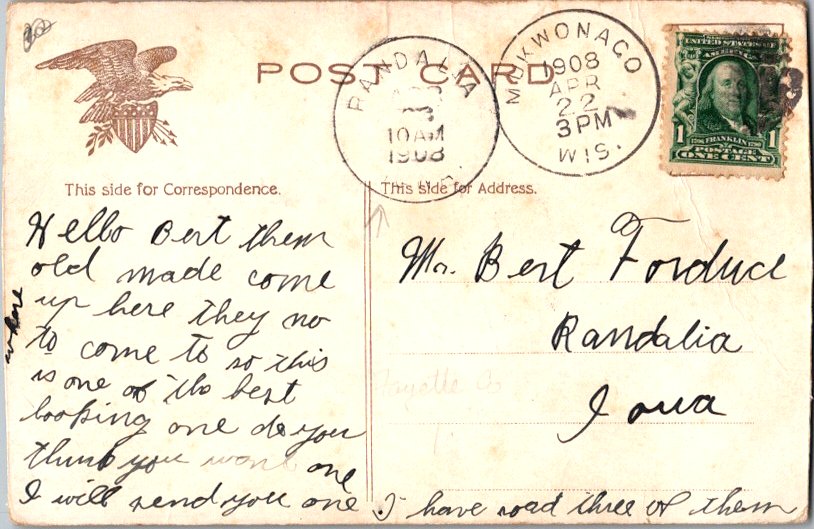 POST CARD
RANDALIA
10 AM
1908
MUKWONAGO
1908
APR
22
3 PM
WIS.
UNITED STATES OF
AMERICA
1 FRANKLIN 1
POSTAGE
ONE CENT
This side for Correspondence.
This side for Address.
Hello Bert them
old made come
up here they no
where
to come to so this
is one of the best
looking one do you
think you want one
I will send you one. I have road three of them
Mr. Bert Forduce
Randalia
Fayette Co
Iowa